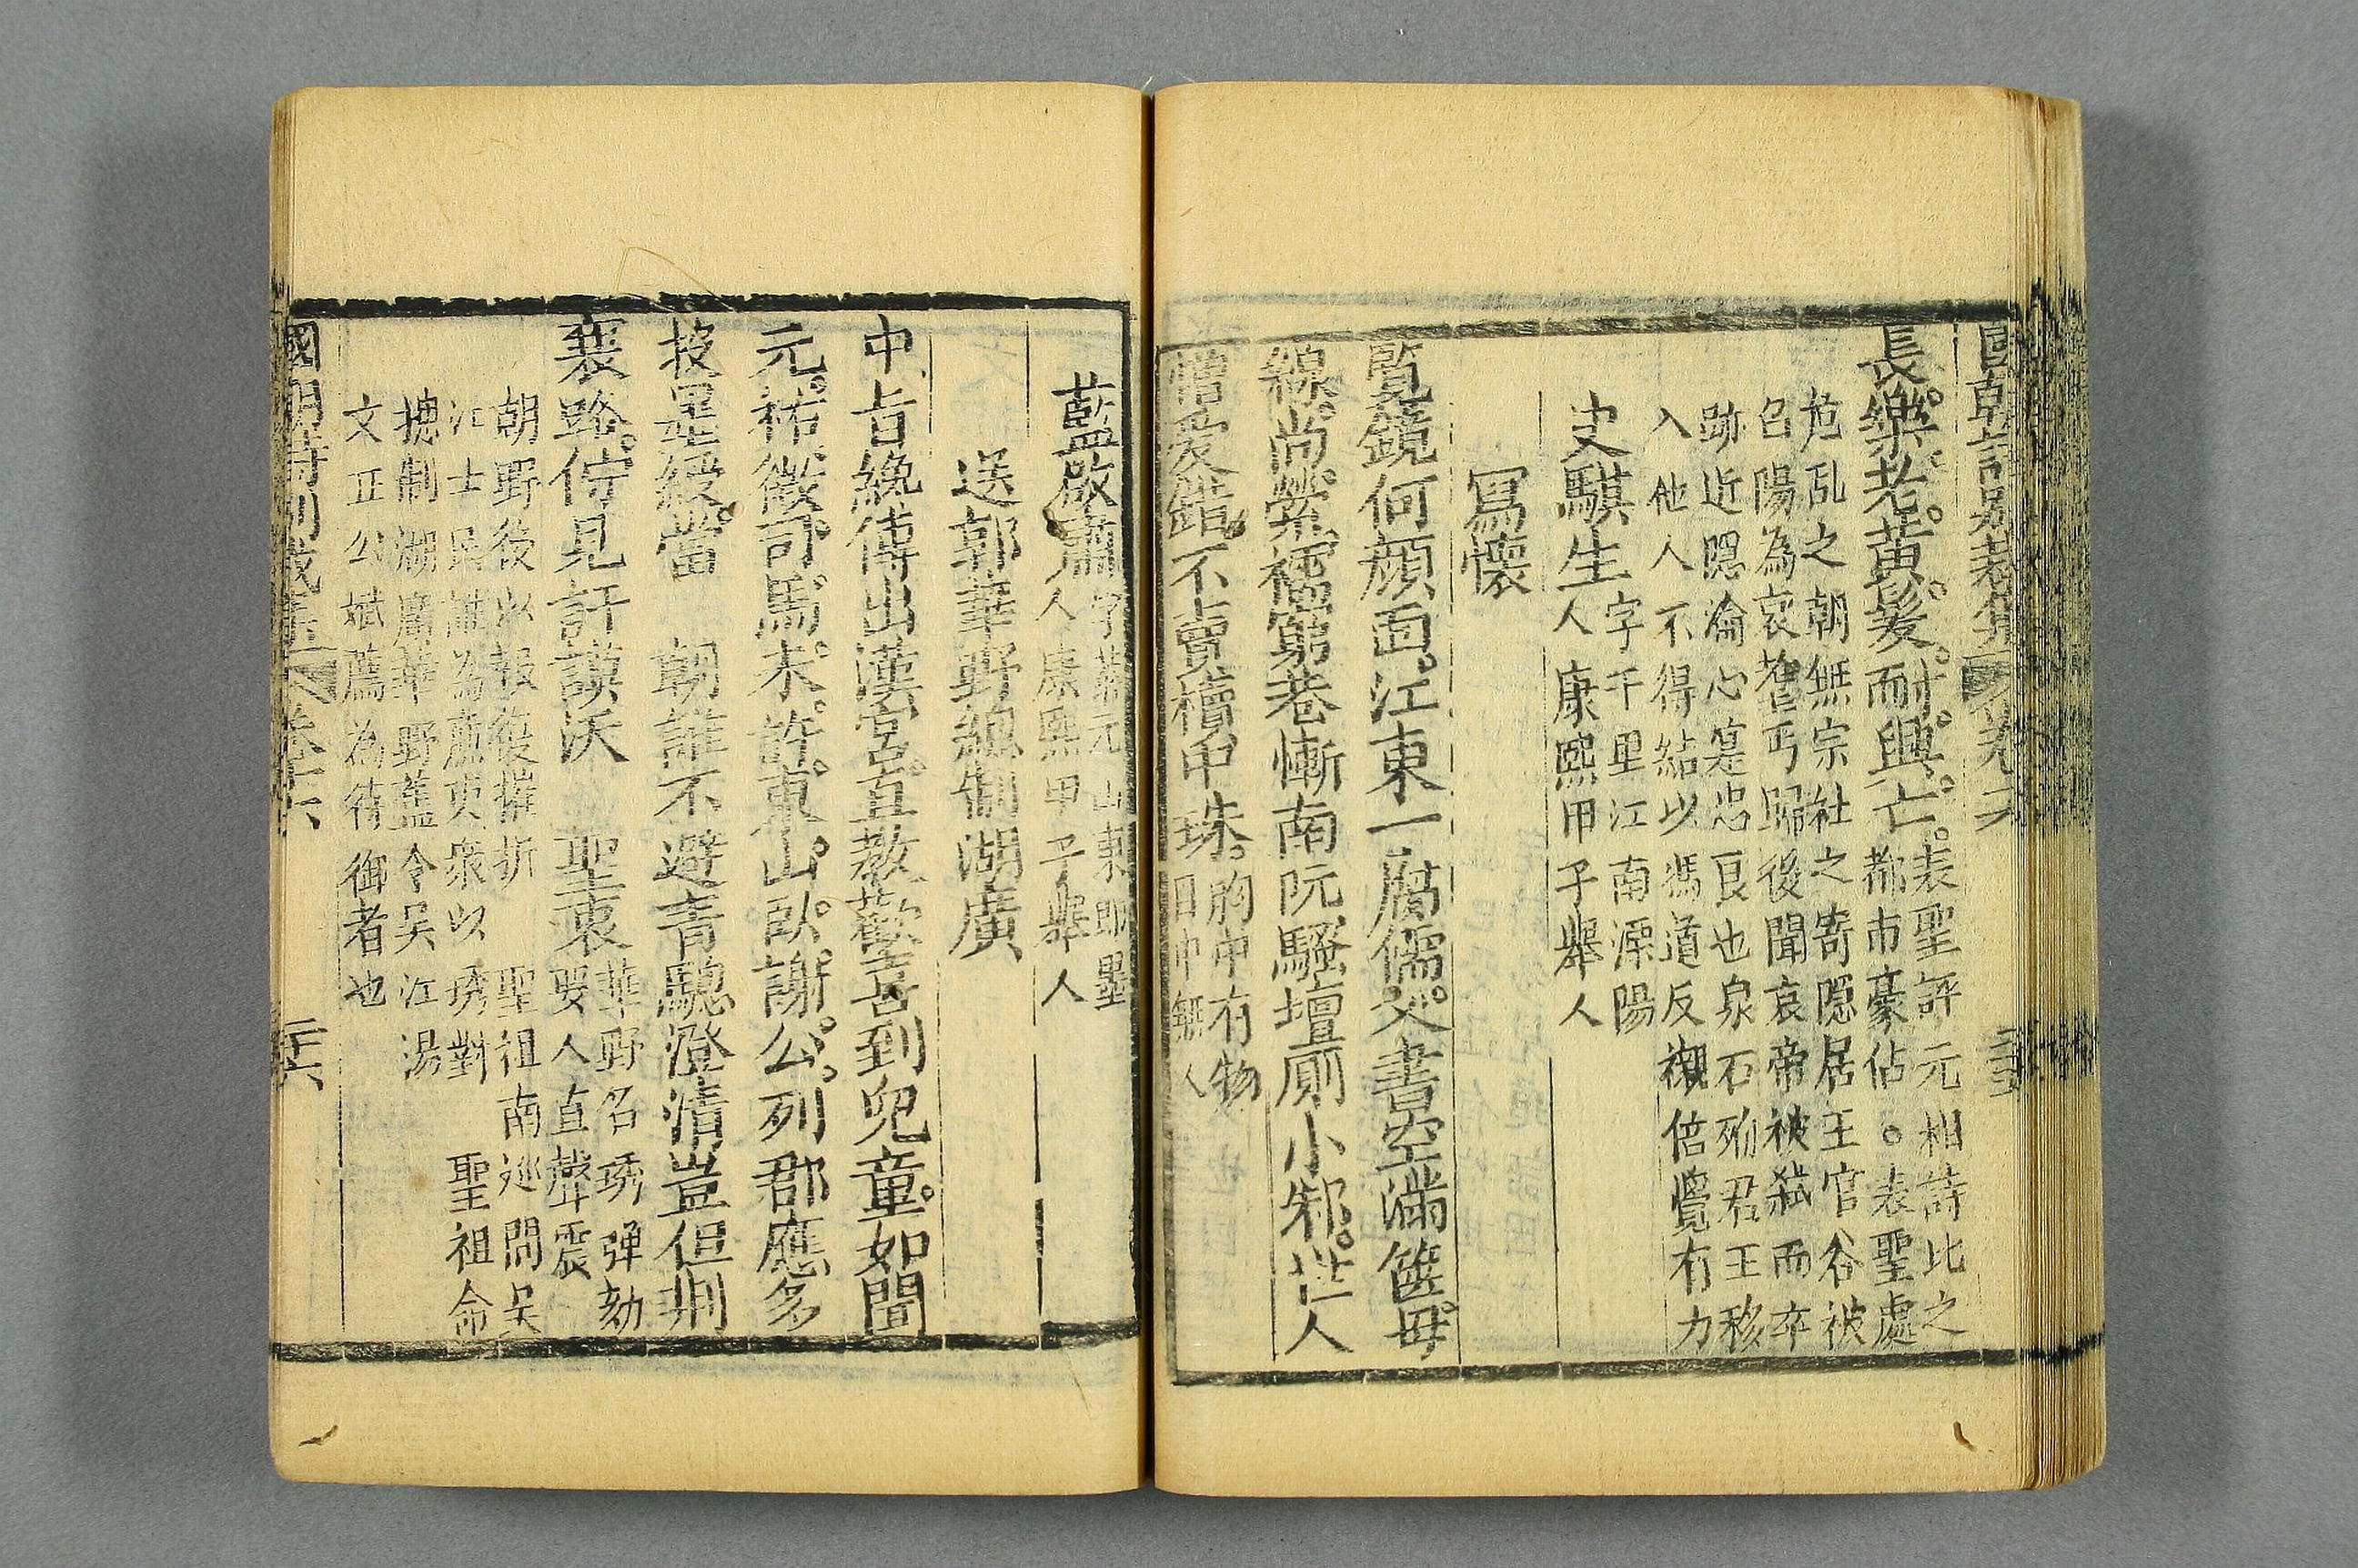 國朝詩別裁集 卷六 三五
長樂老黃髮耐興亡表聖評元相詩比之
都市豪估○表聖處
危亂之朝無宗社之寄隱居王官谷被
召陽為衰耄丐歸後聞哀帝被弒而卒
跡近隱淪心寔忠良也泉石殉君王移
入他人不得結以馮道反襯倍覺有力
史騏生字千里江南溧陽
人康熙甲子舉人
寫懷
覧鏡何顏面江東一腐儒文書空滿篋毋
線尚縈襦窮巷慚南阮騷壇厠小邾世人
憎愛錯不賣櫝中珠胸中有物
目中無人
藍啟肅字恭元山東即墨
人康熙甲子舉人
送郭華野總制湖廣
中旨纔傳出漢宮直教歡喜到兒童如聞
元祐徵司馬未許東山臥謝公列郡應多
投墨綬當 朝誰不避青驄澄清豈但荆
襄路佇見訏謨沃 聖衷華野名琇彈劾
要人直聲震
朝野後以報復摧折 聖祖南廵問吳
江士民誰為廉吏衆以琇對 聖祖命
摠制湖廣華野舊令吳江湯
文正公斌薦為待御者也
國朝詩別裁集 卷六 三六